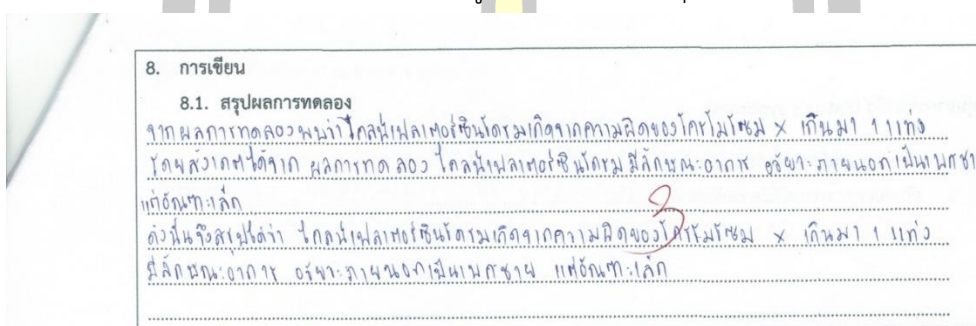 8. การเขียน
8.1. สรุปผลการทดลอง
จากผลการทดลองพบว่าไคลน์เฟลเตอร์ซินโดรมเกิดจากความผิดของโครโมโซม × เกินมา 1 แท่ง
โดยสังเกตได้จาก ผลการทดลอง ไคลน์เฟลเตอร์ซินโดรม มีลักษณะอาการ อวัยวะภายนอกเป็นเพศชา
แต่อัณฑะเล็ก
3
ดังนั้นจึงสรุปได้ว่า ไคลน์เฟลเตอร์ซินโดรมเกิดจากความผิดของโครโมโซม × เกินมา 1 แท่ง
มีลักษณะอาการ อวัยวะภายนอกเป็นเพศชาย แต่อัณฑะเล็ก